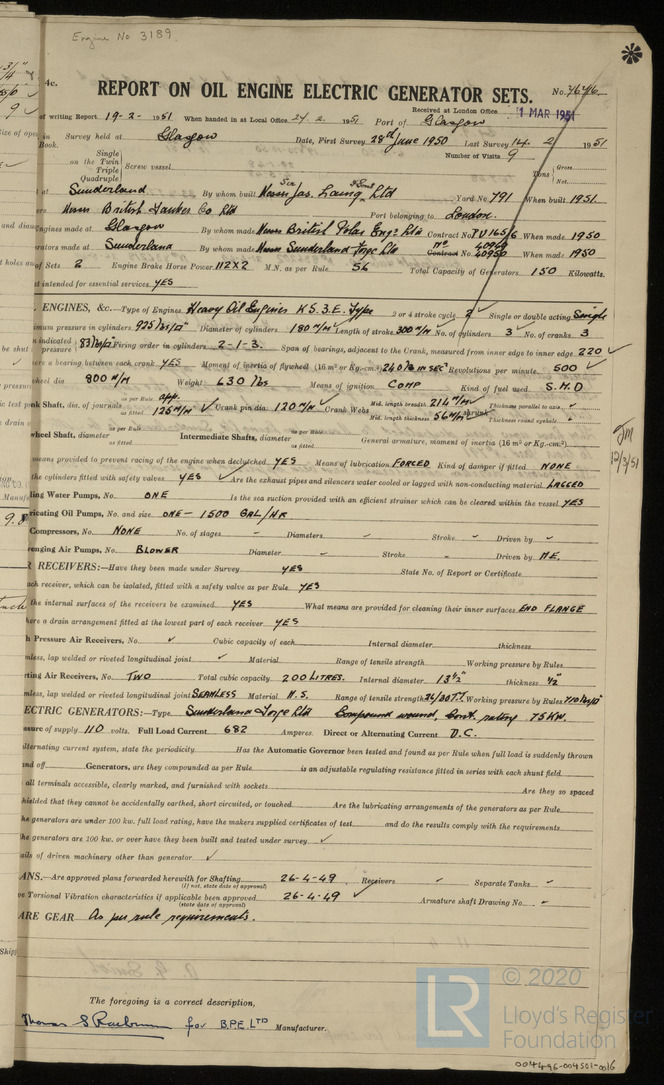 Engine No 3189.
4c.
REPORT ON OIL ENGINE ELECTRIC GENERATOR SETS.
No. 7676
Received at London Office 1 MAR 1951
of writing Report 19-2-1951 When handed in at Local Office 24 2. 1951 Port of Glasgow
in Survey held at Glasgow Date, First Survey 28th June 1950 Last Survey 14. 2 1951
Book. Number of Visits 9
Single
on the Twin
Triple
Quadruple
Screw vessel
Tons Gross
Net
at Sunderland By whom built Messrs Sir Jas. Laing & Sons Ltd Yard No. 791 When built 1951.
Messrs British Tanker Co Ltd Port belonging to London.
Engines made at Glasgow By whom made Messrs British Polar Engs Ltd Contract No. When made 1950
erators made at Sunderland By whom made Messrs Sunderland Forge Ltd Contract No. 40950 When made 1950
of Sets 2 Engine Brake Horse Power 112X2 M.N. as per Rule 56 Total Capacity of Generators 150 Kilowatts.
t intended for essential services YES
ENGINES, &c.—Type of Engines Heavy Oil Engines K S. 3. E. Type 2 or 4 stroke cycle 2 Single or double acting Single
imum pressure in cylinders 925 lbs/□" Diameter of cylinders 180 M/M Length of stroke 300 M/M No. of cylinders 3 No. of cranks 3
indicated Firing order in cylinders 2-1-3. Span of bearings, adjacent to the Crank, measured from inner edge to inner edge 220
ere a bearing between each crank YES Moment of inertia of flywheel (16 m² or Kg.-cm.²) Revolutions per minute 500
wheel dia 800 M/M Weight 630 lbs Means of ignition COMP Kind of fuel used S.H.D
nk Shaft, dia. of journals as per Rule app. as fitted 125 M/M Crank pin dia. 120 M/M Crank Webs Mid. length breadth 214 M/M Thickness parallel to axis
Mid. length thickness 56 M/M shrunk Thickness round eyehole
wheel Shaft, diameter as per Rule as fitted Intermediate Shafts, diameter as per Rule as fitted General armature, moment of inertia (16 m² or Kg.-cm.²)
JM
12/3/51
means provided to prevent racing of the engine when declutched YES Means of lubrication FORCED Kind of damper if fitted NONE
the cylinders fitted with safety valves YES Are the exhaust pipes and silencers water cooled or lagged with non-conducting material LAGGED
ling Water Pumps, No. ONE Is the sea suction provided with an efficient strainer which can be cleared within the vessel YES
ricating Oil Pumps, No. and size ONE - 1500 GAL/HR
Compressors, No. NONE No. of stages - Diameters Stroke Driven by
enging Air Pumps, No. BLOWER Diameter Stroke Driven by M.E.
R RECEIVERS:—Have they been made under Survey YES State No. of Report or Certificate
ach receiver, which can be isolated, fitted with a safety valve as per Rule YES
the internal surfaces of the receivers be examined YES What means are provided for cleaning their inner surfaces END FLANGE
here a drain arrangement fitted at the lowest part of each receiver YES
h Pressure Air Receivers, No. Cubic capacity of each Internal diameter thickness
mless, lap welded or riveted longitudinal joint Material Range of tensile strength Working pressure by Rules
rting Air Receivers, No. TWO Total cubic capacity 200 LITRES. Internal diameter 13½" thickness ½"
mless, lap welded or riveted longitudinal joint SEAMLESS Material M.S. Range of tensile strength 26/30 T.T. Working pressure by Rules
ECTRIC GENERATORS:—Type Sunderland Forge Ltd Compound wound, Cont. rating 75 KW.
ssure of supply 110 volts. Full Load Current 682 Amperes. Direct or Alternating Current D.C.
lternating current system, state the periodicity Has the Automatic Governor been tested and found as per Rule when full load is suddenly thrown
nd off Generators, are they compounded as per Rule is an adjustable regulating resistance fitted in series with each shunt field
all terminals accessible, clearly marked, and furnished with sockets Are they so spaced
hielded that they cannot be accidentally earthed, short circuited, or touched Are the lubricating arrangements of the generators as per Rule
he generators are under 100 kw. full load rating, have the makers supplied certificates of test and do the results comply with the requirements
he generators are 100 kw. or over have they been built and tested under survey
ails of driven machinery other than generator
ANS.—Are approved plans forwarded herewith for Shafting 26-4-49 Receivers Separate Tanks
(If not, state date of approval)
ve Torsional Vibration characteristics if applicable been approved 26-4-49 Armature shaft Drawing No.
(state date of approval)
ARE GEAR As per rule requirements.
The foregoing is a correct description,
Thomas S Raeburn for B.P.E. Ltd Manufacturer.
LR
© 2020
Lloyd's Register
Foundation
004496-004501-0016